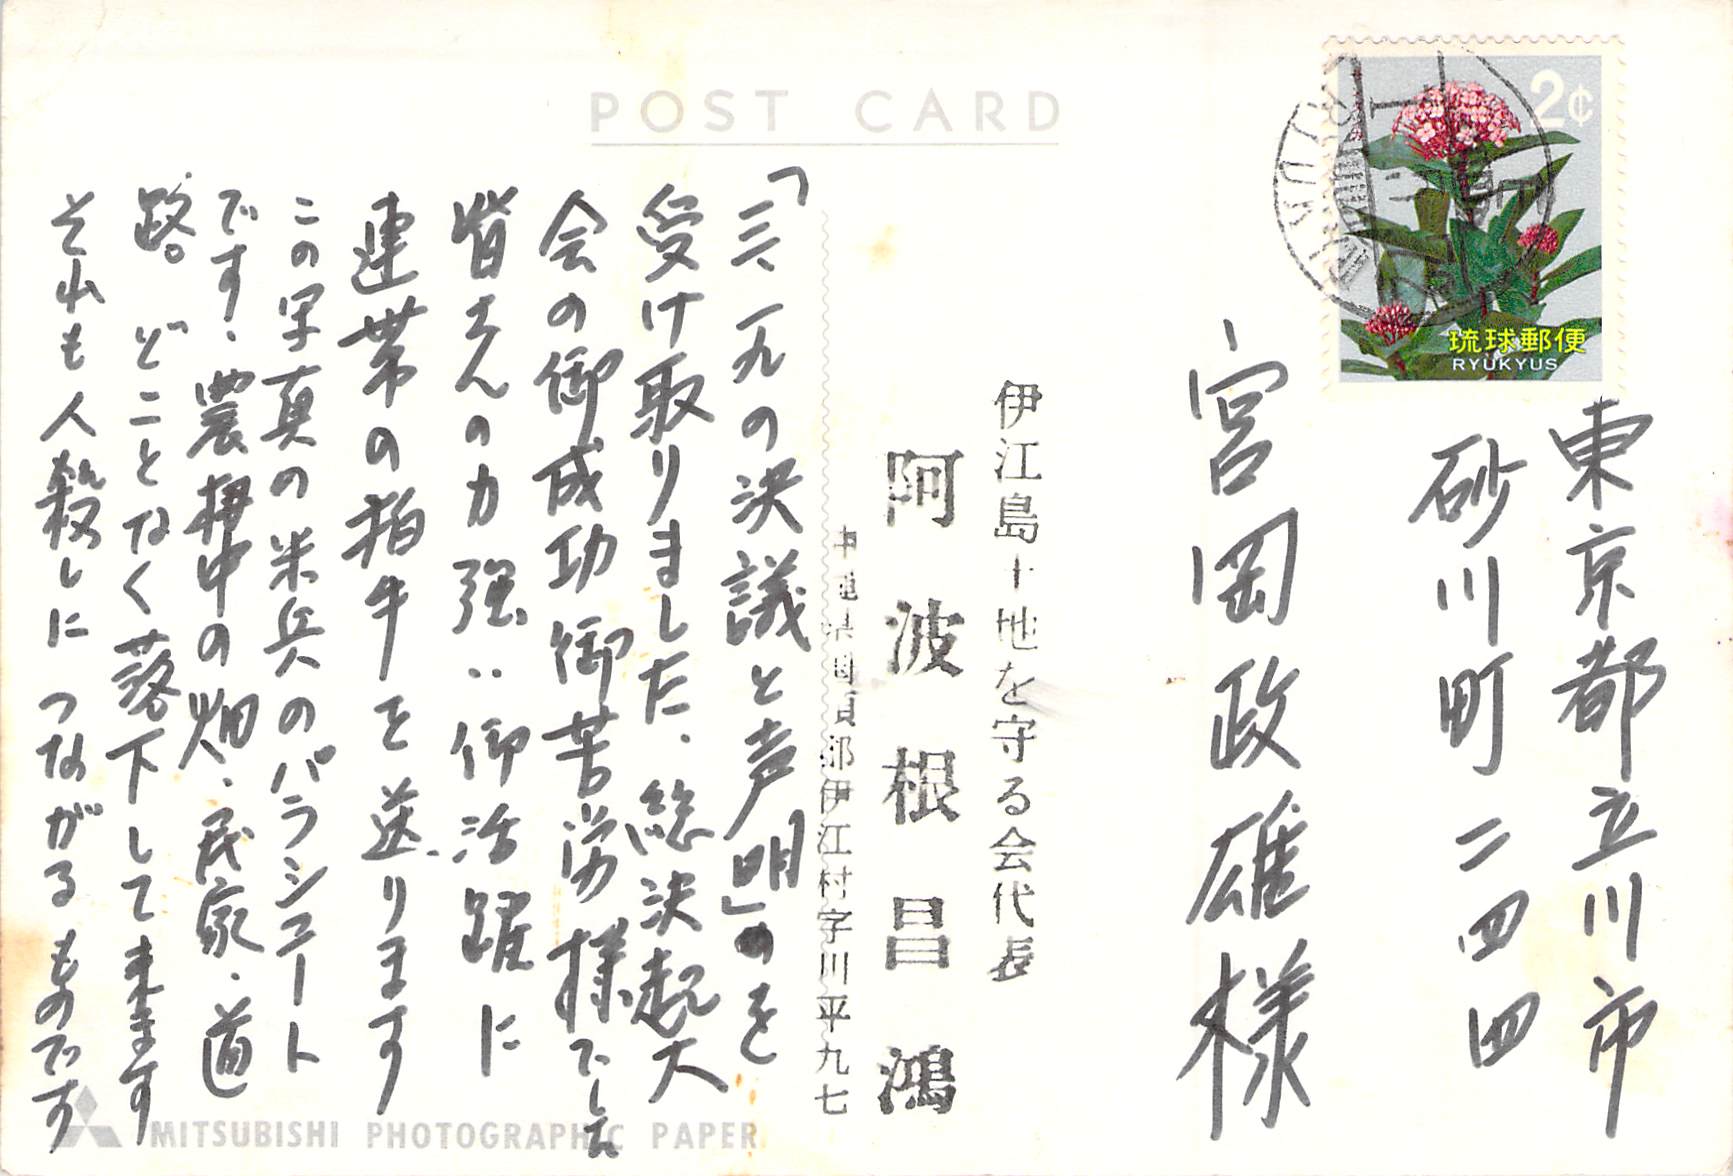 POST CARD
2¢
琉球郵便
RYUKYUS
RYUKYUS
東京都立川市
砂川町二四四
宮岡政雄様
伊江島土地を守る会代表
阿波根昌鴻
沖縄県国頭郡伊江村字川平九七
「三、一九の決議と声明」のを
受け取りました、総決起大
会の御成功御苦労様でした
皆さんの力強い御活躍に
連帯の拍手を送ります
この写真の米兵のパラシュート
です、農耕中の畑、民家、道
路。どことなく落下して来ます
それも人殺しにつながるものです
MITSUBISHI PHOTOGRAPHIC PAPER